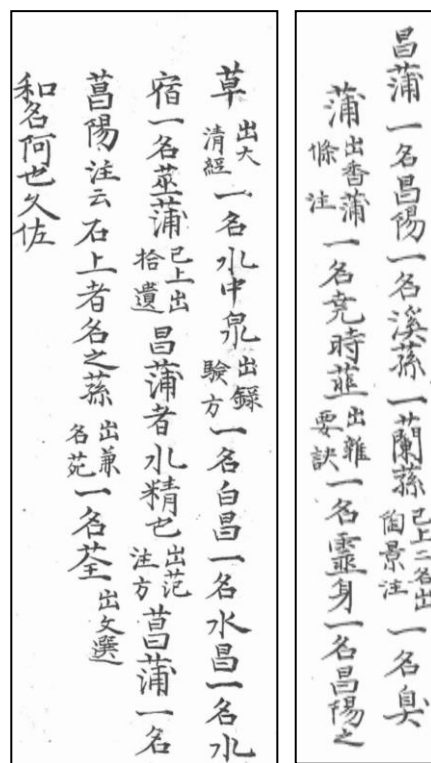 昌蒲一名昌陽一名溪蓀一蘭蓀已上二名出陶景注一名臭
蒲出香蒲條注一名堯時韮出雜要訣一名靈身一名昌陽之
草出大清經一名水中泉出錄驗方一名白昌一名水昌一名水
宿一名莖蒲已上出拾遺昌蒲者水精也出范注方菖蒲一名
菖陽注云石上者名之蓀出兼名苑一名荃出文選
和名阿也久佐